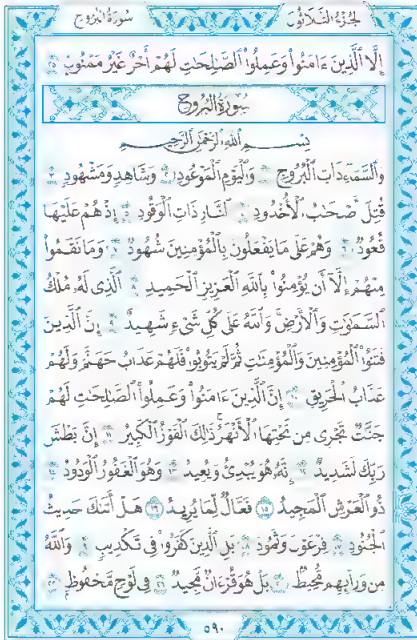 سُورَةُ البُرُوجِ الجُزْءُ الثَّلَاثُونَ
إِلَّا ٱلَّذِينَ ءَامَنُوا۟ وَعَمِلُوا۟ ٱلصَّـٰلِحَـٰتِ لَهُمْ أَجْرٌ غَيْرُ مَمْنُونٍۭ ٢٥
سُورَةُ البُرُوجِ
بِسْمِ ٱللَّهِ ٱلرَّحْمَـٰنِ ٱلرَّحِيمِ
وَٱلسَّمَآءِ ذَاتِ ٱلْبُرُوجِ ١ وَٱلْيَوْمِ ٱلْمَوْعُودِ ٢ وَشَاهِدٍ وَمَشْهُودٍ ٣
قُتِلَ أَصْحَـٰبُ ٱلْأُخْدُودِ ٤ ٱلنَّارِ ذَاتِ ٱلْوَقُودِ ٥ إِذْ هُمْ عَلَيْهَا
قُعُودٌ ٦ وَهُمْ عَلَىٰ مَا يَفْعَلُونَ بِٱلْمُؤْمِنِينَ شُهُودٌ ٧ وَمَا نَقَمُوا۟
مِنْهُمْ إِلَّآ أَن يُؤْمِنُوا۟ بِٱللَّهِ ٱلْعَزِيزِ ٱلْحَمِيدِ ٨ ٱلَّذِى لَهُۥ مُلْكُ
ٱلسَّمَـٰوَٰتِ وَٱلْأَرْضِ ۚ وَٱللَّهُ عَلَىٰ كُلِّ شَىْءٍ شَهِيدٌ ٩ إِنَّ ٱلَّذِينَ
فَتَنُوا۟ ٱلْمُؤْمِنِينَ وَٱلْمُؤْمِنَـٰتِ ثُمَّ لَمْ يَتُوبُوا۟ فَلَهُمْ عَذَابُ جَهَنَّمَ وَلَهُمْ
عَذَابُ ٱلْحَرِيقِ ١٠ إِنَّ ٱلَّذِينَ ءَامَنُوا۟ وَعَمِلُوا۟ ٱلصَّـٰلِحَـٰتِ لَهُمْ
جَنَّـٰتٌ تَجْرِى مِن تَحْتِهَا ٱلْأَنْهَـٰرُ ۚ ذَٰلِكَ ٱلْفَوْزُ ٱلْكَبِيرُ ١١ إِنَّ بَطْشَ
رَبِّكَ لَشَدِيدٌ ١٢ إِنَّهُۥ هُوَ يُبْدِئُ وَيُعِيدُ ١٣ وَهُوَ ٱلْغَفُورُ ٱلْوَدُودُ ١٤
ذُو ٱلْعَرْشِ ٱلْمَجِيدُ ١٥ فَعَّالٌ لِّمَا يُرِيدُ ١٦ هَلْ أَتَىٰكَ حَدِيثُ
ٱلْجُنُودِ ١٧ فِرْعَوْنَ وَثَمُودَ ١٨ بَلِ ٱلَّذِينَ كَفَرُوا۟ فِى تَكْذِيبٍ ١٩ وَٱللَّهُ
مِن وَرَآئِهِم مُّحِيطٌۢ ٢٠ بَلْ هُوَ قُرْءَانٌ مَّجِيدٌ ٢١ فِى لَوْحٍ مَّحْفُوظٍۭ ٢٢
٥٩٠